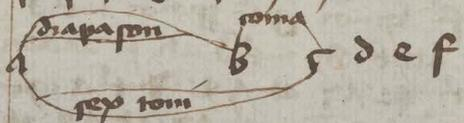 diapason toma
a b c d e f
sex toni